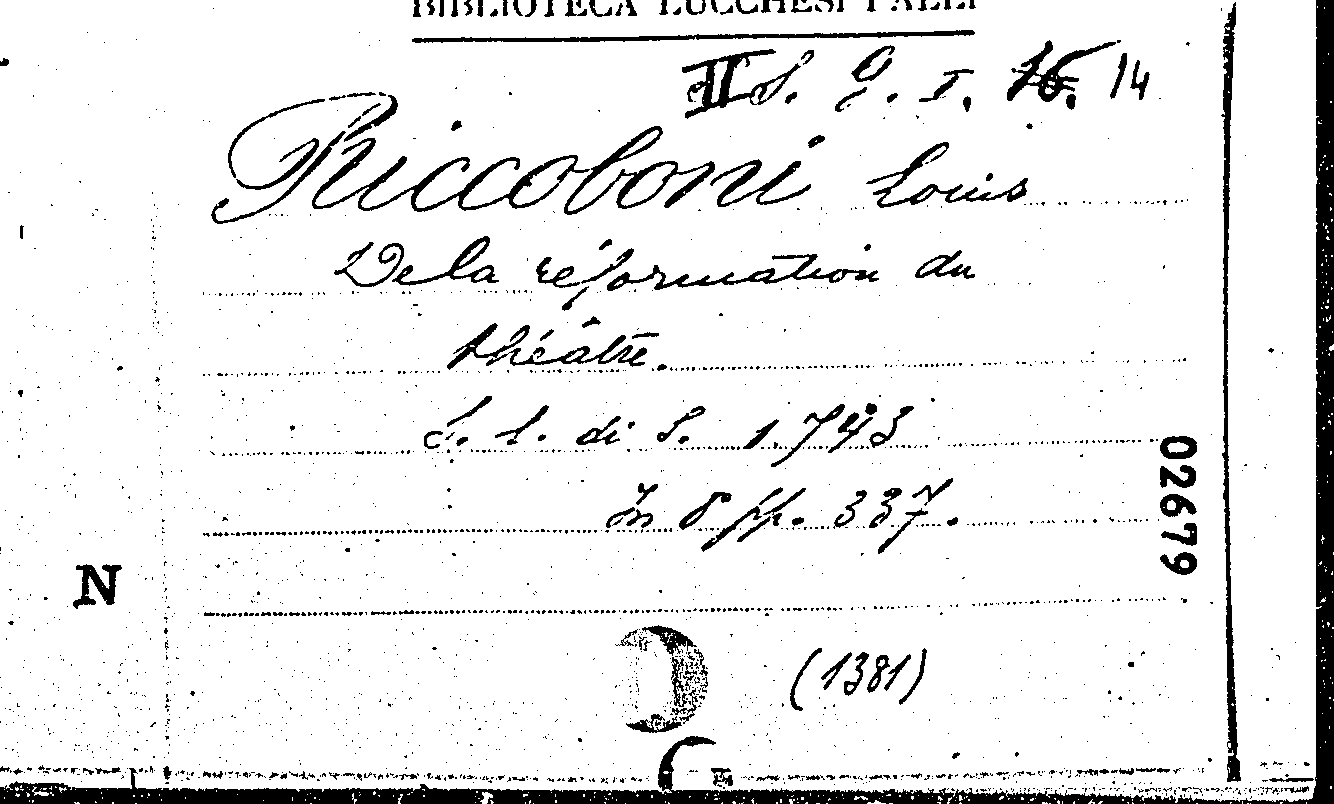 BIBLIOTECA LUCCHESI PALLI
II S. G. I. 16. 14
Riccoboni Louis
De la réformation du
théâtre.
S. l. di S. 1743
In 8° pp. 337.
02679
N
(1381)